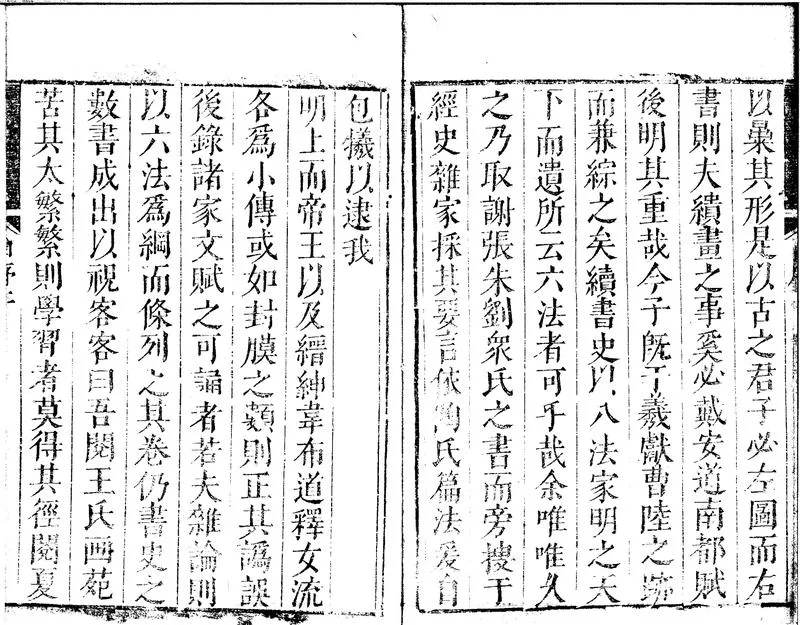 以彙其形是以古之君子必左圖而右
書則夫繢畫之事奚必戴安道南都賦
後明其重哉今子旣于羲獻曹陸之跡
而兼綜之矣續書史以八法家明之天
下而遺所云六法者可乎哉余唯唯久
之乃取謝張朱劉衆氏之書而旁搜于
經史雜家採其要言依陶氏篇法爰自
包犧以逮我
明上而帝王以及縉紳韋布道釋女流
各爲小傳或如封膜之類則正其譌誤
後錄諸家文賦之可誦者若夫雜論則
以六法爲綱而條列之其卷仍書史之
數書成出以視客客曰吾閱王氏画苑
苦其太繁繁則學習者莫得其徑閱夏